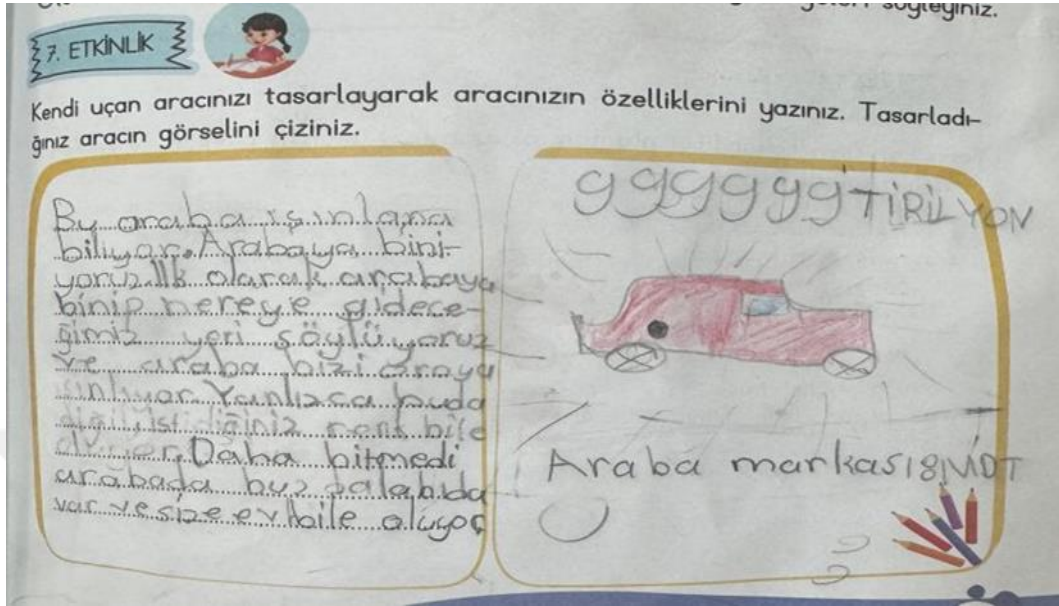 söyleyiniz.
7. ETKİNLİK
Kendi uçan aracınızı tasarlayarak aracınızın özelliklerini yazınız. Tasarladı-
ğınız aracın görselini çiziniz.
Bu araba ışınlana
biliyor. Arabaya bini-
yoruz. İlk olarak arabaya
binip nereye gidece-
ğimiz yeri söylüyoruz
ve araba bizi oraya
ışınlıyor. Yanlızca buda
diğil, istidiğiniz renk bile
oluyor. Daha bitmedi
arabada buz dalabıda
var ve size ev bile oluyor
999999 TİRİLYON
Araba markası